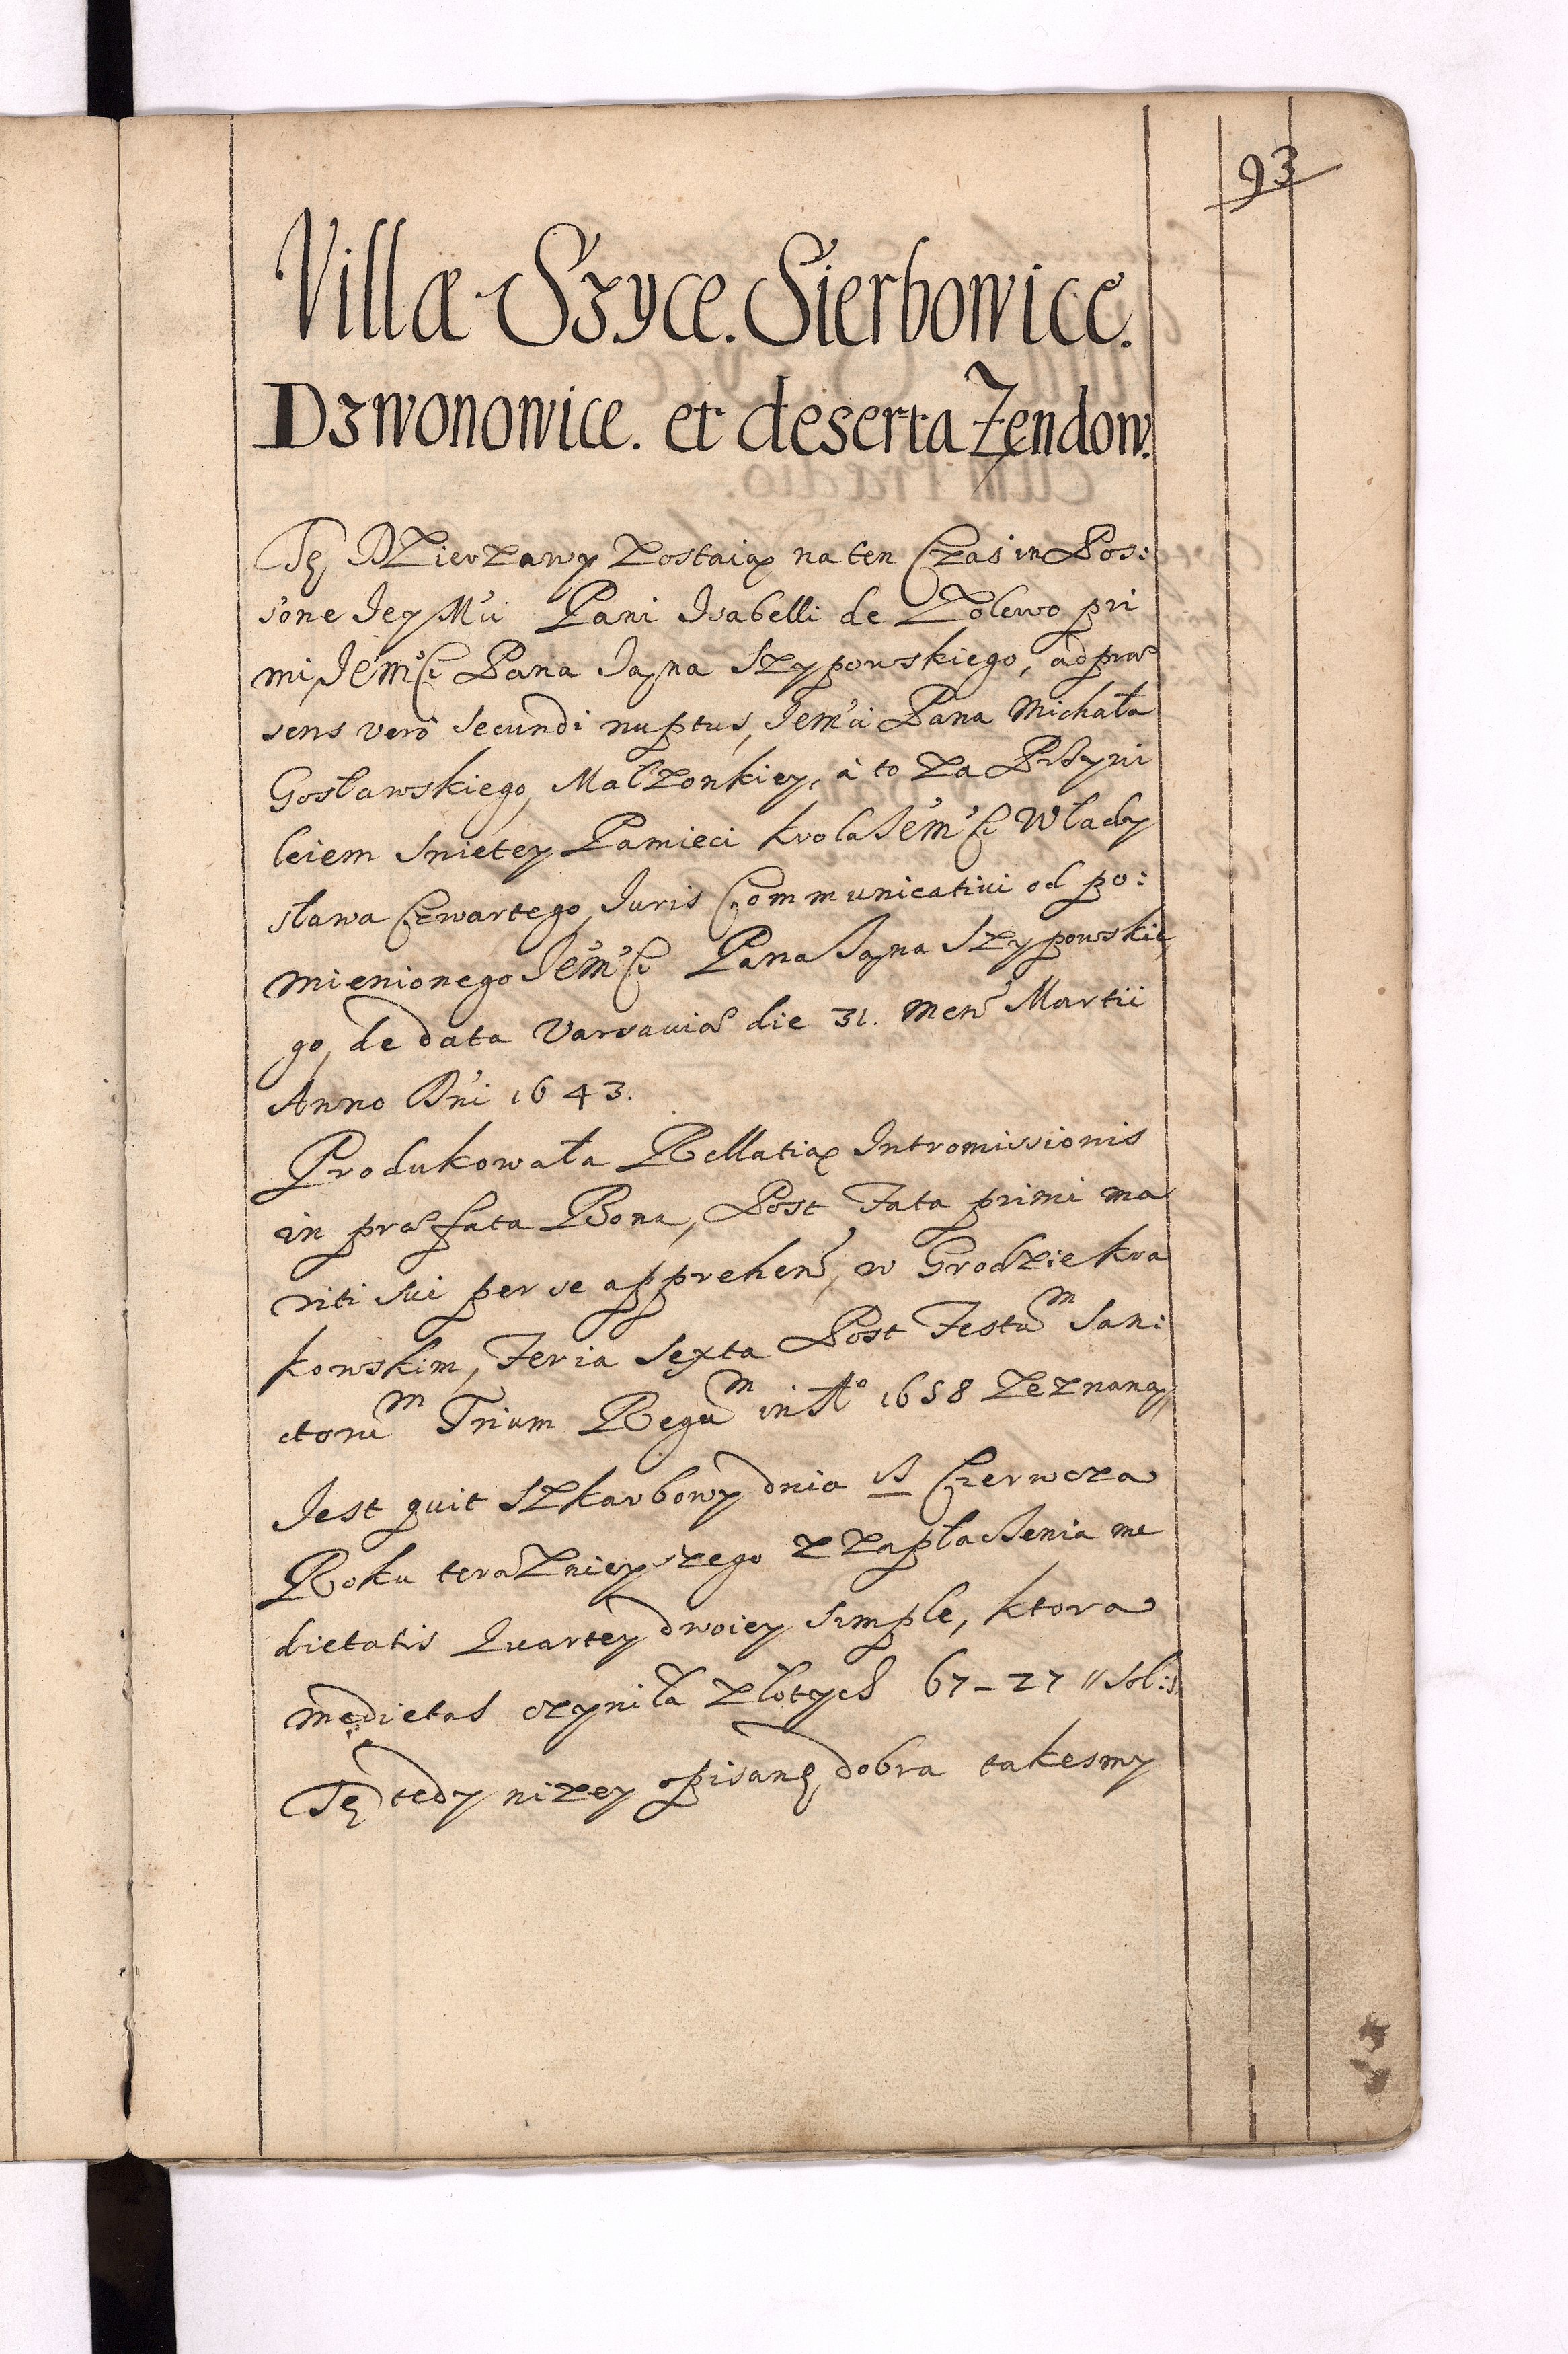 93
Villæ Szyce. Sierbowice.
Dzwonowice. et deserta Zendow.
Tę Dzierzawy zostaią na ten Czas in Pos:
sone Jey Mci Pani Isabelli de Zolewo pri
mi Jemści Pana Jana Szypowskiego, ad præ
sens vero secundi nuptus, Jemci Pana Michała
Gosławskiego, Małzonkiey, à to za Przyvi
leiem Swietey Pamieci krola Jemści Włady
sława Czwartego, Iuris Communicativi od po:
mienionego Jemści Pana Jana Szypowskie
go, de data Varsaviæ die 31. Mens Martii
Anno Dni 1643.
Produkowała Rellatią Intromissionis
in præfata Bona, Post Fata primi ma
riti sui per se apprehens, w Grodzie kra
kowskim, Feria Sexta Post Festum San:
ctorum Trium Regum in Ao 1658 zeznaną,
Jest quit Szkarbowy dnia Czerwcza
Roku terazniejszego z zapłaczenia me
dietatis Quartey dwoiey simple, ktora
medietas czyniła złotych 67-27 // sol:
Tę tedy nizey opisane, dobra takesmy